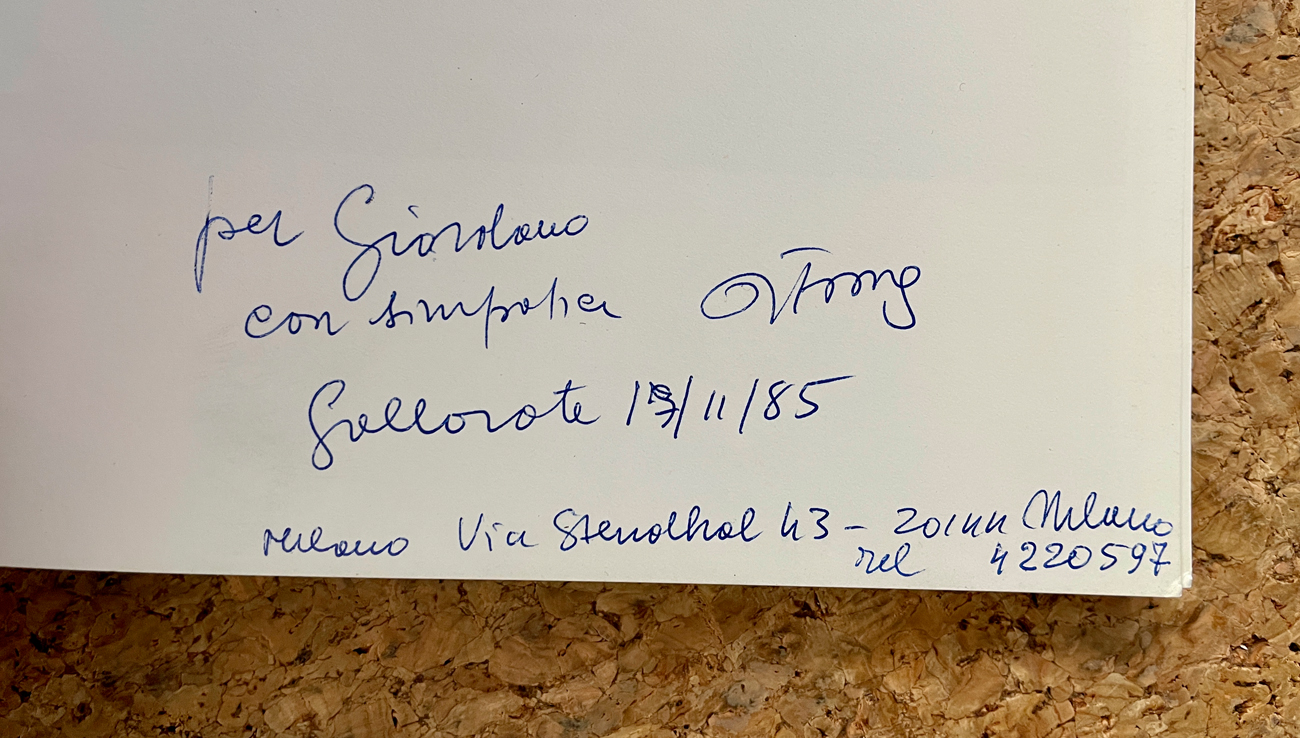 per Giordano
con simpatia
Gallarate 19/11/85
Milano Via Stendhal 43 - 20144 Milano
Tel 4220597